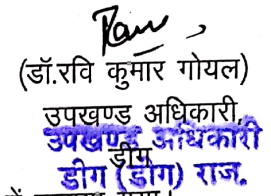 (डॉ.रवि कुमार गोयल)
उपखण्ड अधिकारी,
उपखण्ड अधिकारी
डीग
डीग (डीग) राज.